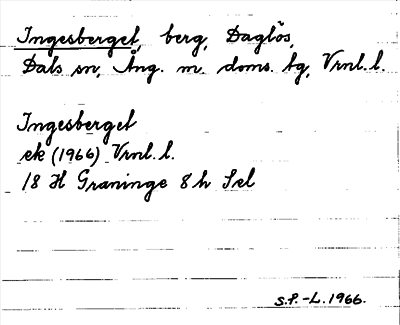 Ingesberget, berg, Daglös,
Dals sn, Ång. m. doms. tg, Vrnl. l.
Ingesberget
ek (1966) Vrnl. l.
18 H Graninge 8 h Sel
S.P.-L. 1966.